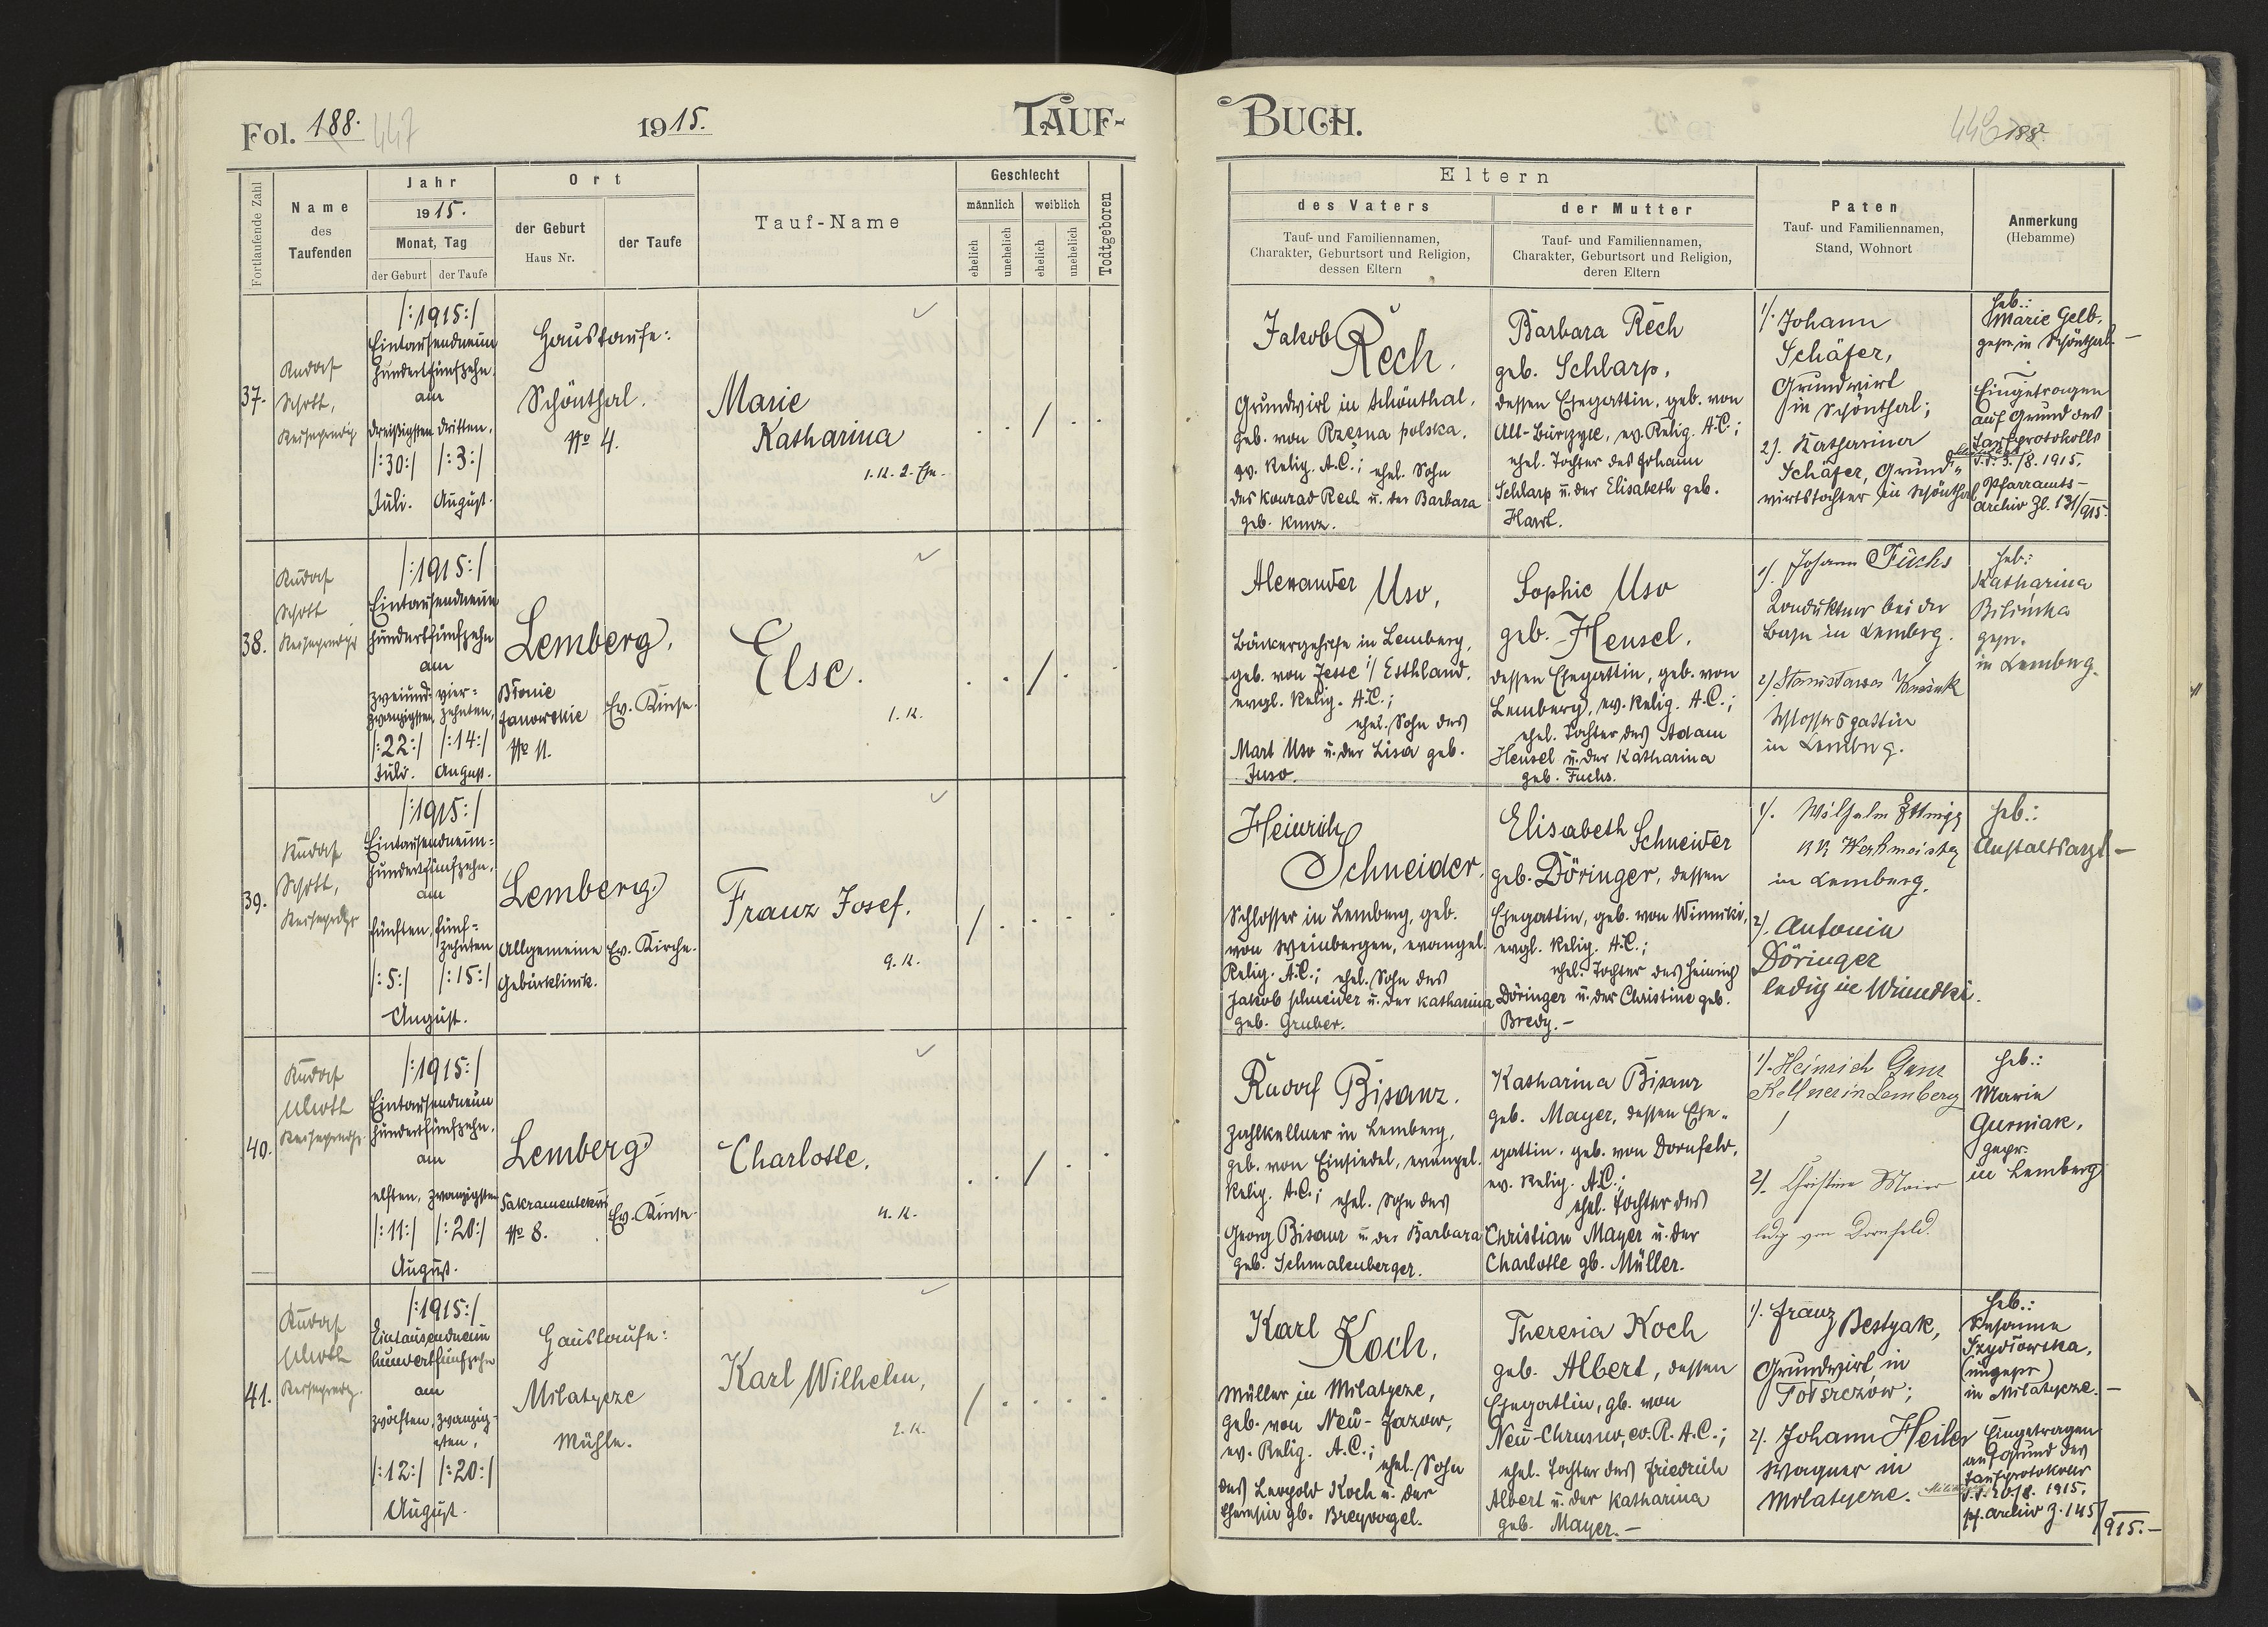 Fol. 188. 447
1915.
TAUF-
Fortlaufende Zahl
Name
des
Taufenden
Jahr
1915.
Monat, Tag
der Geburt
der Taufe
Ort
der Geburt
Haus Nr.
der Taufe
Tauf-Name
Geschlecht
männlich
weiblich
ehelich
unehelich
ehelich
unehelich
Todtgeboren
37.
Rudolf
Schott,
Reiseprediger
/:1915:/
Eintausendneun
hundertfünfzehn,
am
dreißigsten
dritten,
/:30:/
/:3:/
Juli.
August.
Haustaufe:
Schönthal.
No 4.
Marie
Katharina
1. K. 2. Ehe.
38.
Rudolf
Schott
Reiseprediger
/:1915:/
Eintausendneun
hundertfünfzehn
am
zweiund-
zwanzigsten
vier-
zehnten,
/:22:/
/:14:/
Juli.
August.
Lemberg,
Błonie
Janowskie
No 11.
Ev. Kirche.
Else.
1. K.
39.
Rudolf
Schott,
Reiseprediger
/:1915:/
Eintausendneun-
hundertfünfzehn,
am
fünften,
fünf-
zehnten
/:5:/
/:15:/
August.
Lemberg
Allgemeine
Gebärklinik.
Ev. Kirche.
Franz Josef.
9. K.
40.
Rudolf
Schott
Reiseprediger
/:1915:/
Eintausendneun
hundertfünfzehn.
am
elften,
zwanzigsten
/:11:/
/:20:/
August.
Lemberg
No 8.
Ev. Kirche.
Charlotte.
4. K.
41.
Rudolf
Schott
Reiseprediger
/:1915:/
Eintausendneun
hundertfünfzehn
am
zwölften,
zwanzig-
sten,
/:12:/
/:20:/
August.
Haustaufe:
Milatycze
Mühle.
Karl Wilhelm,
2. K.
BUCH.
188.
Eltern
des Vaters
Tauf- und Familiennamen,
Charakter, Geburtsort und Religion,
dessen Eltern
der Mutter
Tauf- und Familiennamen,
Charakter, Geburtsort und Religion,
deren Eltern
Paten
Tauf- und Familiennamen,
Stand, Wohnort
Anmerkung
(Hebamme)
Jakob
Rech.
Grundwirt in Schönthal,
geb. von Rzęsna polska,
ev. Relig. A.C.; ehel. Sohn
des Konrad Rech u. der Barbara
geb. Kunz.
Barbara Rech
geb. Schlarp,
dessen Ehegattin, geb. von
Alt-Burczyce, ev. Relig. A.C.;
ehel. Tochter des Johann
Schlarp u. der Elisabeth geb.
1). Johann
Schäfer,
Grundwirt
in Schönthal;
2). Katharina
Schäfer, Grund-
wirtstochter in Schönthal
Heb.:
Marie Gelb,
gepr. in Schönthal.
Eingetragen
auf Grund des
Taufprotokolls
d.d. 3./8. 1915.
Pfarramts-
archiv Zl. 131/915.
Alexander Uso,
Bäckergehilfe in Lemberg,
geb. von Jesse i/ Esthland.
evgl. Relig. A.C.;
ehel. Sohn des
Mart Uso u. der Lisa geb.
Juso.
Sophie Uso
geb. Hensel,
dessen Ehegattin, geb. von
Lemberg, ev. Relig. A.C.;
ehel. Tochter des Adam
Hensel u. der Katharina
geb. Fuchs.
1). Johann Fuchs
Kondukteur bei der
Bahn in Lemberg.
2) Stanisława
Schlossersgattin
in Lemberg.
Heb:
Katharina
Bilińska
gepr.
in Lemberg.
Heinrich
Schneider,
Schlosser in Lemberg, geb.
von Weinbergen, evangel.
Relig. A.C.; ehel. Sohn des
Jakob Schneider u. der Katharina
geb. Gruber.
Elisabeth
Schneider
geb. Döringer, dessen
Ehegattin, geb. von Winniki,
evgl. Relig. A.C.;
ehel. Tochter des Heinrich
Döringer u. der Christine geb.
Bredy. -
1). Wilhelm
KK Werkmeister
in Lemberg.
2). Antonia
Döringer
ledig in Winniki.
Heb.:
Anstaltsarzt -
Rudolf Bisanz.
Zahlkellner in Lemberg,
geb. von Einsiedel, evangel.
Relig. A.C.; ehel. Sohn des
Georg Bisanz u. der Barbara
geb. Schmalenberger.
Katharina Bisanz
geb. Mayer, dessen Ehe-
gattin, geb. von Dornfeld,
ev. Relig. A.C.;
ehel. Tochter des
Christian Mayer u. der
Charlotte gb. Müller.
1). Heinrich
Kellner in Lemberg
2). Christine Maier
ledig von Dornfeld.
Heb.:
Marie
Gurniak,
gepr.
in Lemberg
Karl
Koch,
Müller in Milatycze,
geb. von Neu-Jazow,
ev. Relig. A.C.;
ehel. Sohn
des Leopold Koch u. der
Theresia gb. Breyvogel.
Theresia Koch
geb. Albert, dessen
Ehegattin, gb. von
Neu-Chrusno, ev. R. A.C.;
ehel. Tochter des Friedrich
Albert u. der Katharina
geb. Mayer. -
1). Franz Bestyak,
Grundwirt in
Tołszczów;
2). Johann Heiler
Wagner in
Milatycze.
Heb.:
Susanne
Szydłowska,
(ungepr)
in Milatycze. -
Eingetragen
auf Grund des
Taufprotokolls
d.d. 20./8. 1915.
pf. archiv Z. 145/915. -